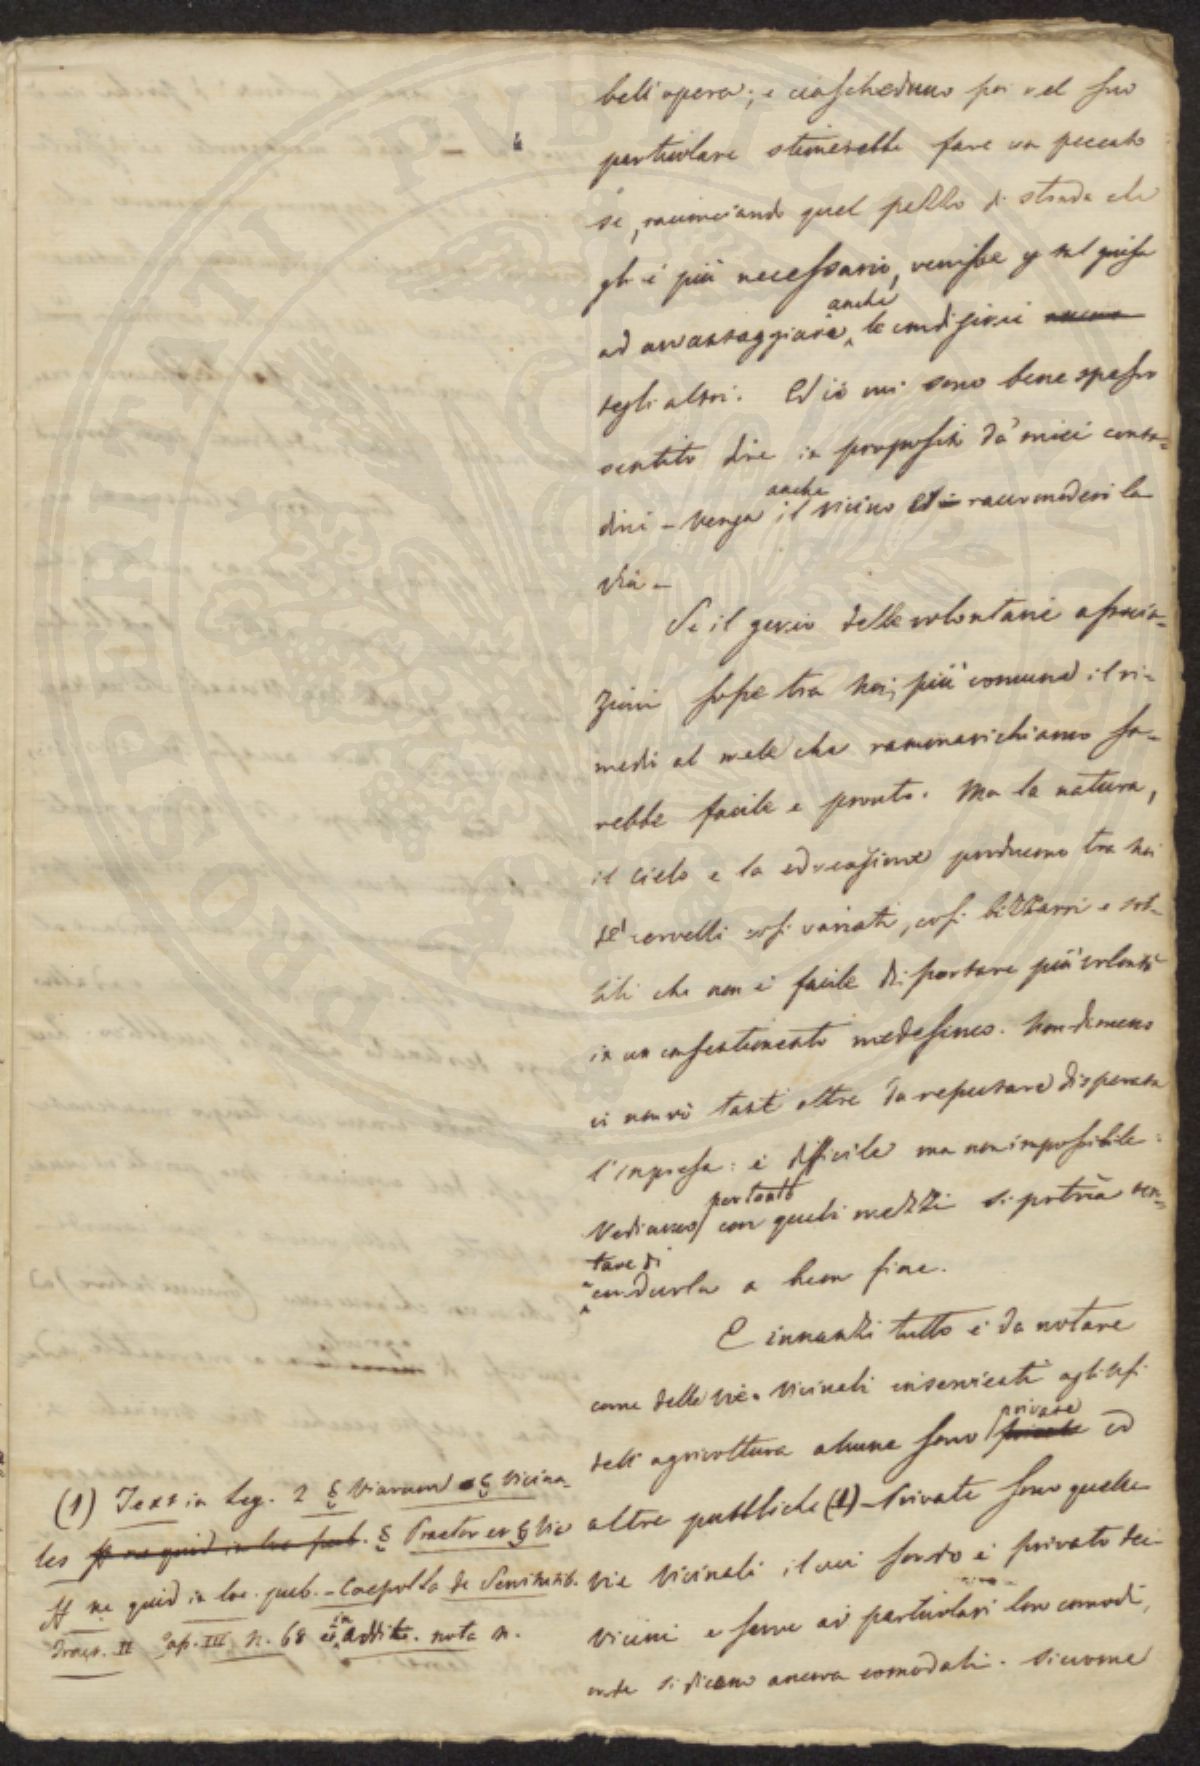 bell'opera; e ciascheduno poi nel suo
particolare stimerebbe fare un peccato
se, racconciando quel pezzo di strada che
gli è più necessario, venisse per tal guisa
ad avvantaggiare anche le condizioni
degli altri. Ed io mi sono bene spesso
sentito dire in proposito da' miei conta-
dini – Venga anche il vicino ed raccomoderò la
via –
Se il genio delle volontarie associa-
zioni fosse tra noi più comune il ri-
medio al male che rammarichiamo sa-
rebbe facile e pronto. Ma la natura,
il cielo e la educazione producono tra noi
de' cervelli così variati, così bizzarri e sot-
tili che non è facile di portare più volontà
in un consentimento medesimo. Nondimeno
ei non vi tanto oltre da reputare disperata
l'impresa: è difficile ma non impossibile:
Vediamo pertanto con quali mezzi si potria ten-
tare di
condurla a ben fine.
E innanzi tutto è da notare
come delle vie vicinali inservienti agli usi
dell'agricoltura alcune sono private ed
altre pubbliche (1) – Private sono quelle
vie vicinali il cui fondo è privato dei
vicini e serve ai particolari loro comodi,
onde si dicono ancora comodali. Siccome
(1) Text in Leg. 2 § Viarum § Vicina-
les ff ne quid in loc pub. § Praetor et § Via
ff ne quid in loc. pub. – Caepolla de Servitutib.
Tract. II Cap. III n. 68 et in addit. nota n.